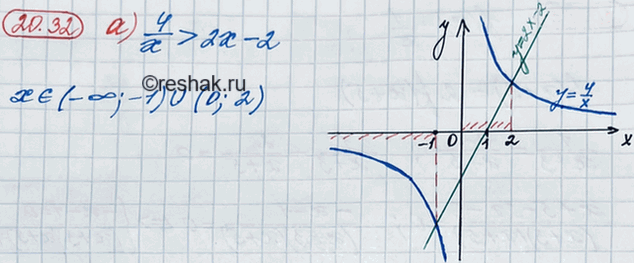 20.32 а) 4/x > 2x-2
©reshak.ru
x∈(-∞; -1)∪(0; 2)
y
y=2x-2
y=4/x
-1 0 1 2 x